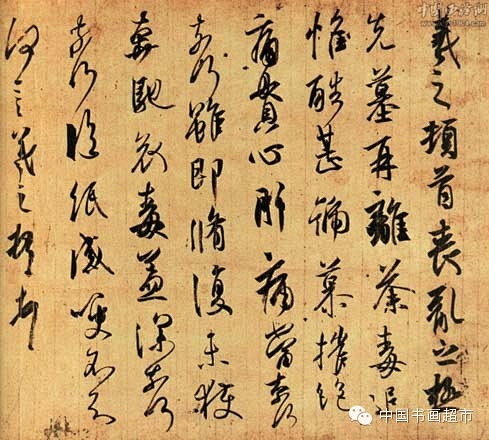 羲之頓首喪亂之極
先墓再離荼毒追
惟酷甚號慕摧絕
痛貫心肝痛當奈何
奈何雖即脩復未獲
奔馳哀毒益深奈何
奈何臨紙感哽不知
何言羲之頓首頓首
中国书画超市